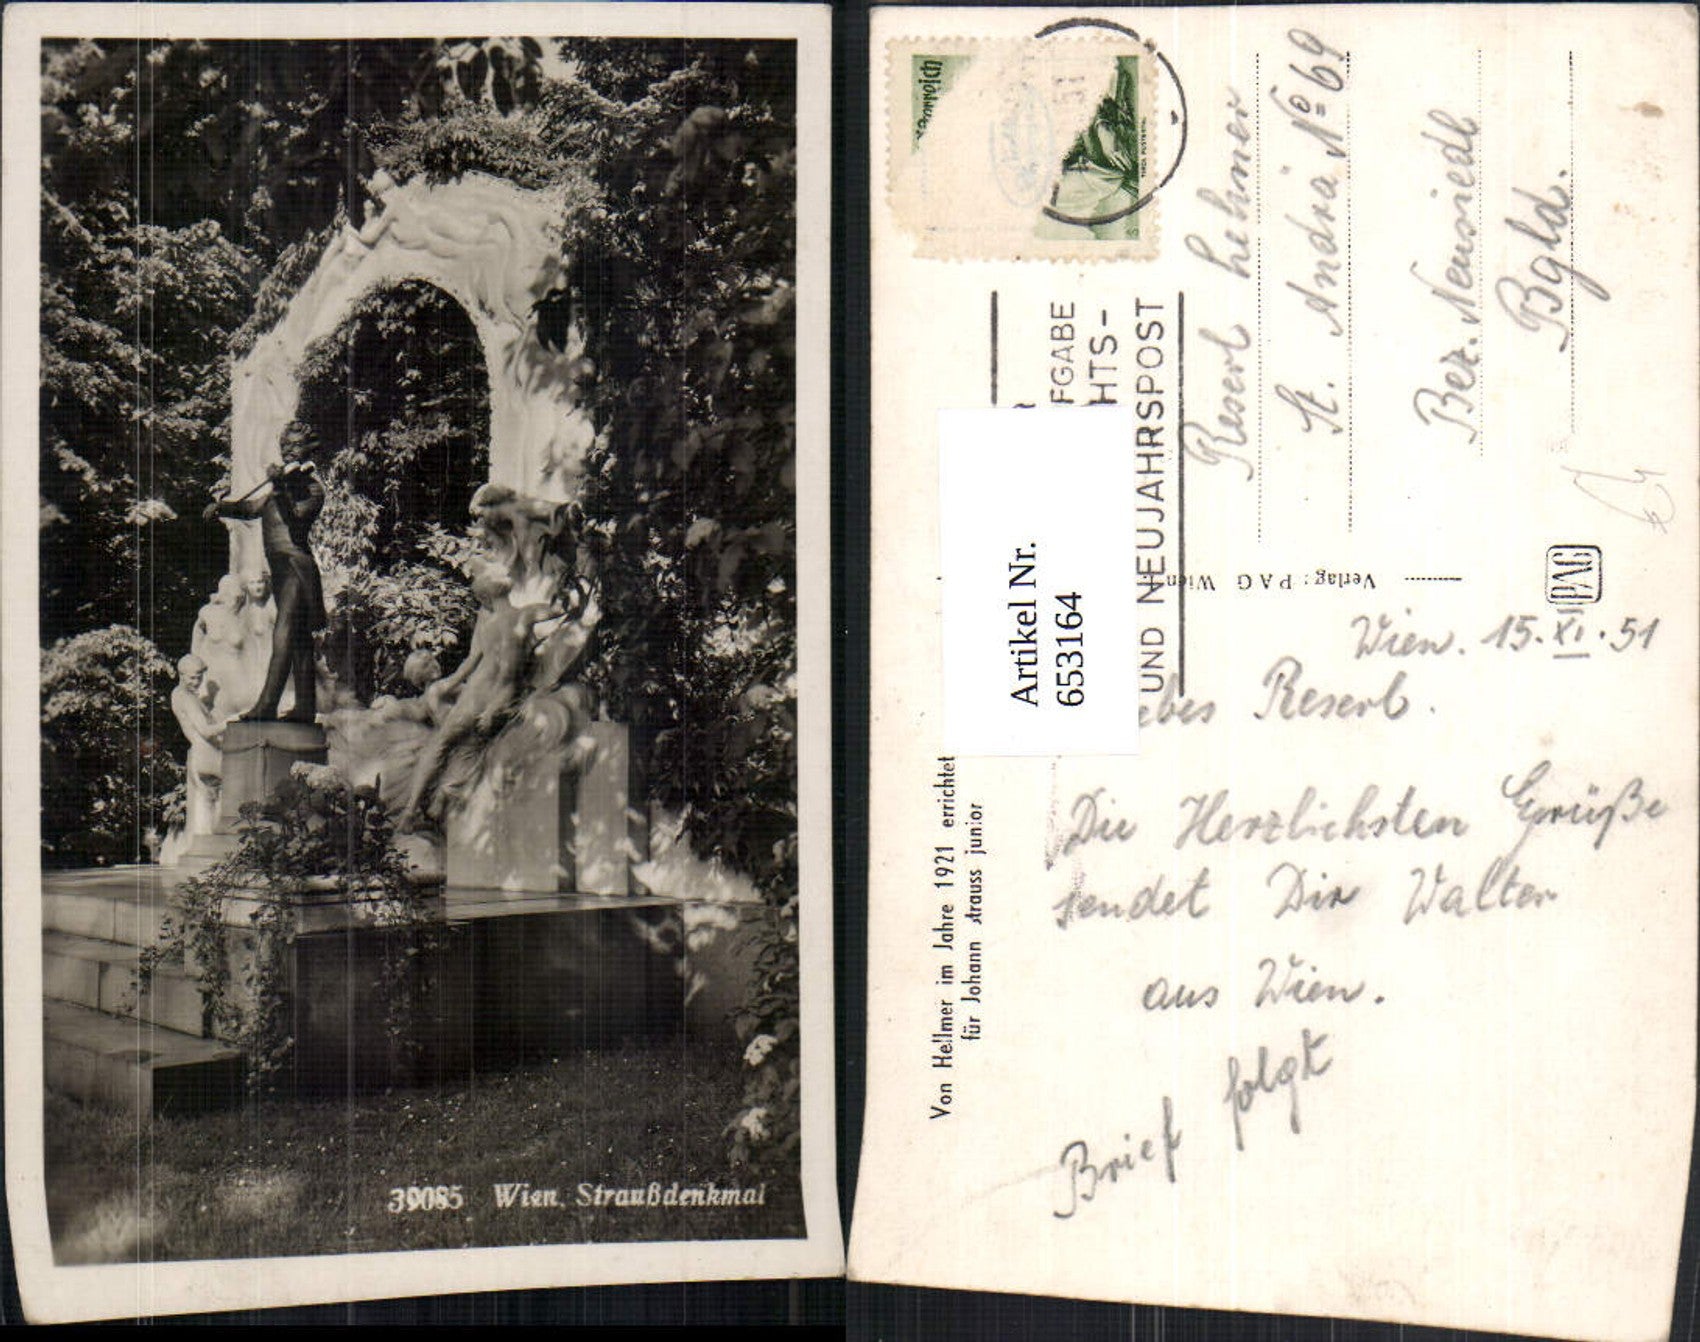 39085 Wien. Straußdenkmal
Österreich
51
UFGABE
HTS-
UND NEUJAHRSPOST
Reserl Lehner
St. Andrä No 69
Bez. Neusiedl
Bgld.
Artikel Nr.
653164
Verlag: PAG Wien
PAG
Von Hellmer im Jahre 1921 errichtet
für Johann Strauss junior
Wien. 15.XI.51
ebes Reserl.
Die Herzlichsten Grüße
sendet Dir Walter
aus Wien.
Brief folgt